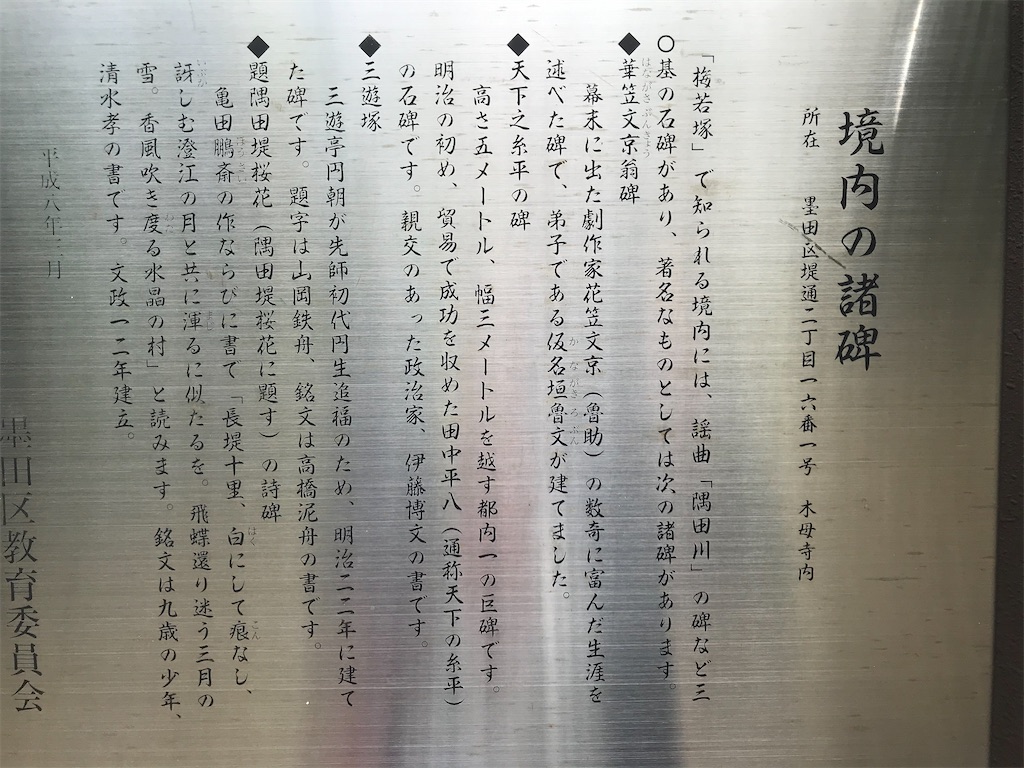 境内の諸碑
所在　墨田区堤通二丁目一六番一号　木母寺内
「梅若塚」で知られる境内には、謡曲「隅田川」の碑など三
〇基の石碑があり、著名なものとしては次の諸碑があります。
◆華笠文京翁碑
幕末に出た劇作家花笠文京（魯助）の数奇に富んだ生涯を
述べた碑で、弟子である仮名垣魯文が建てました。
◆天下之糸平の碑
高さ五メートル、幅三メートルを越す都内一の巨碑です。
明治の初め、貿易で成功を収めた田中平八（通称天下の糸平）
の石碑です。親交のあった政治家、伊藤博文の書です。
◆三遊塚
三遊亭円朝が先師初代円生追福のため、明治二二年に建て
た碑です。題字は山岡鉄舟、銘文は高橋泥舟の書です。
◆題隅田堤桜花（隅田堤桜花に題す）の詩碑
亀田鵬斎の作ならびに書で「長堤十里、白にして痕なし、
訝しむ澄江の月と共に渾るに似たるを。飛蝶還り迷う三月の
雪。香風吹き度る水晶の村」と読みます。銘文は九歳の少年、
清水孝の書です。文政一二年建立。
平成八年三月
墨田区教育委員会